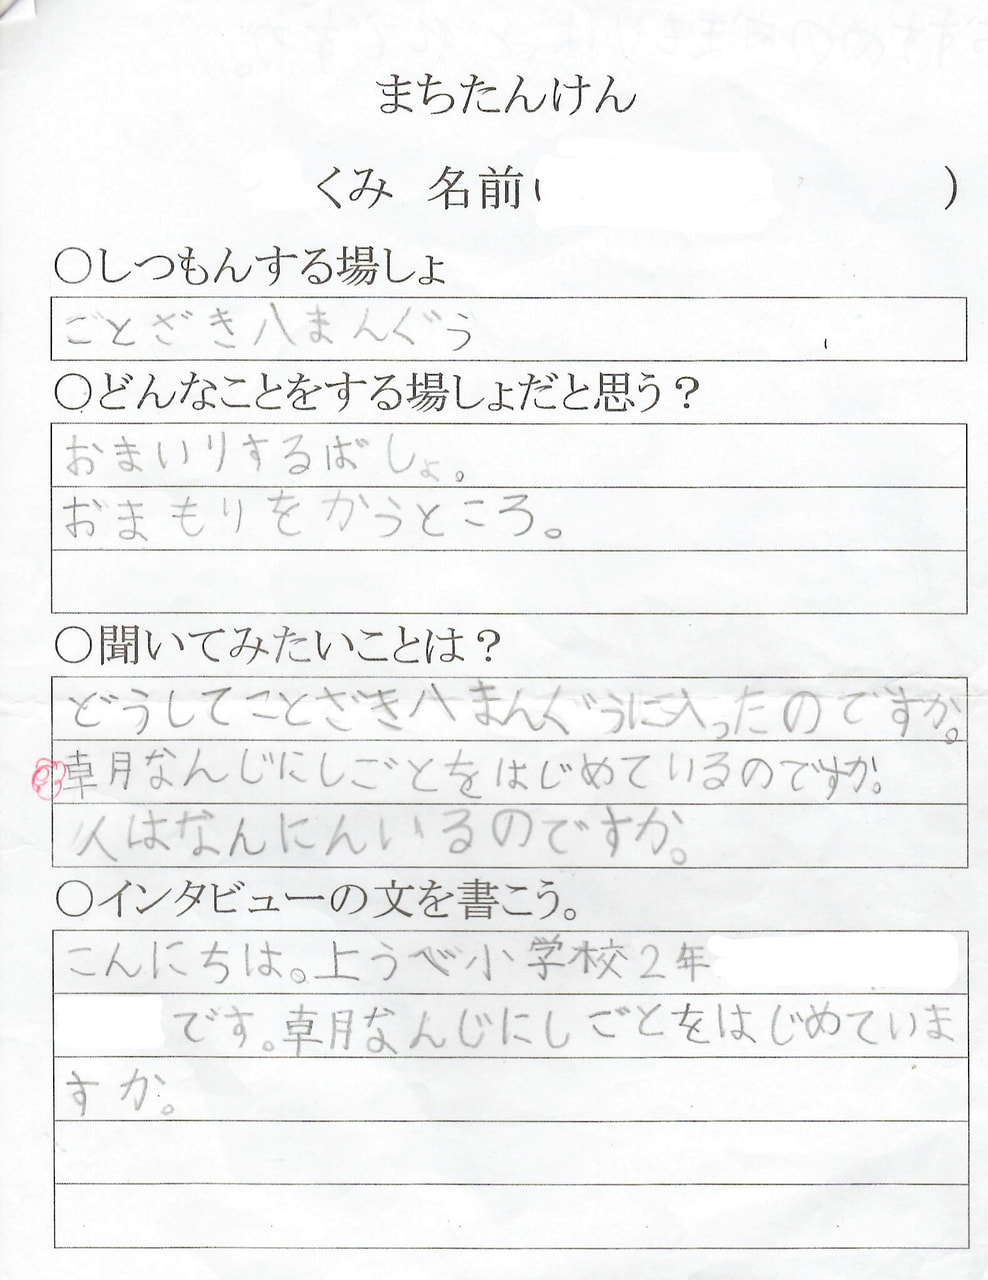 まちたんけん
くみ 名前( )
○しつもんする場しょ
ごとざき八まんぐう
○どんなことをする場しょだと思う？
おまいりするばしょ。
おまもりをかうところ。
○聞いてみたいことは？
どうしてことざき八まんぐうに入ったのですか。
朝なんじにしごとをはじめているのですか。
人はなんにんいるのですか。
○インタビューの文を書こう。
こんにちは。上うべ小学校2年
です。朝なんじにしごとをはじめていま
すか。